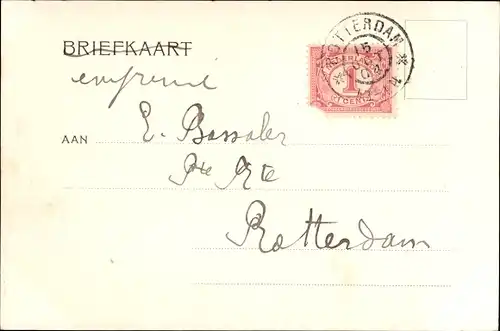 BRIEFKAART
ROTTERDAM
15
1
CENT
AAN E. Bossaler
Pte Rte
Rotterdam